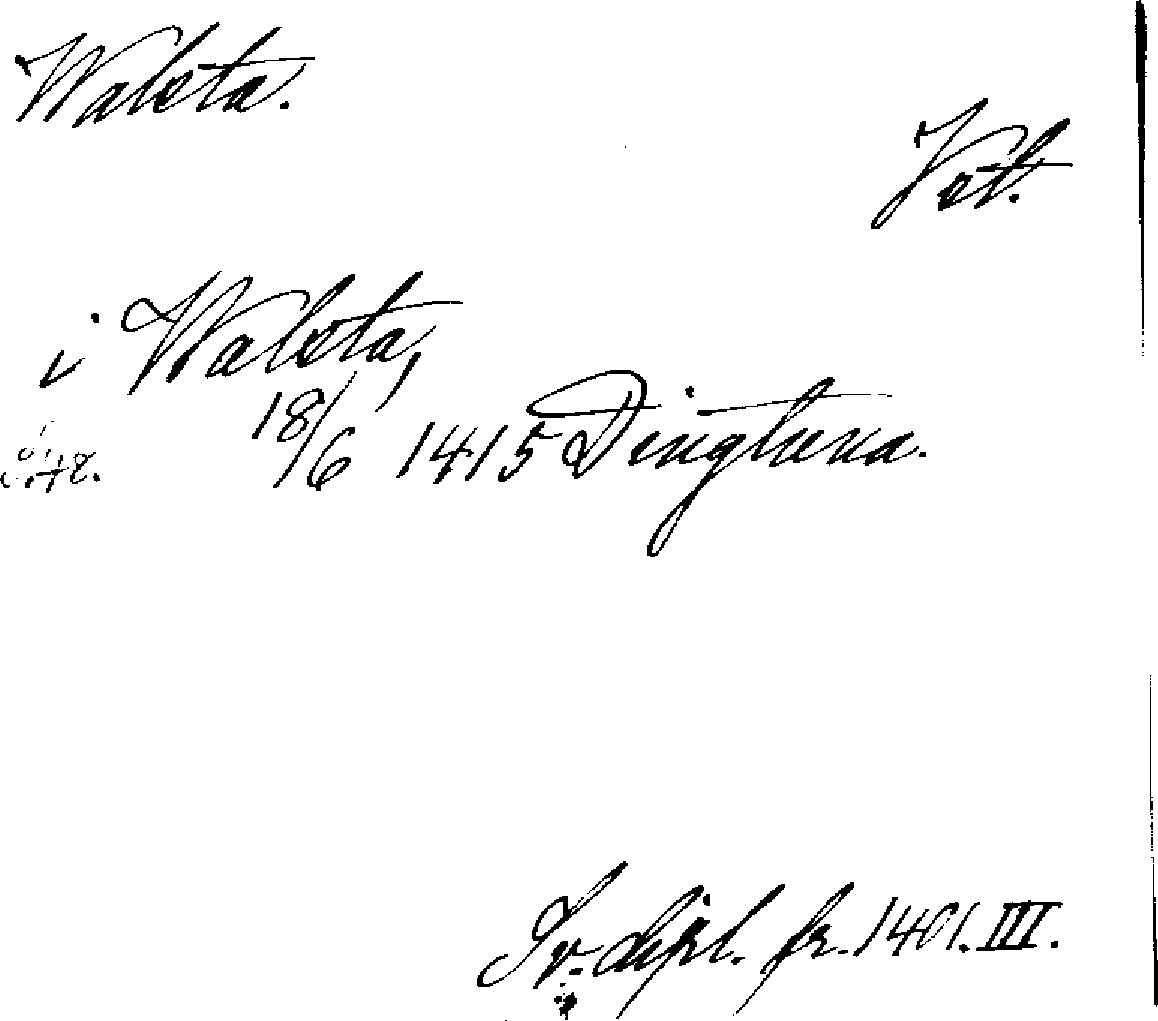 Walsta.
Vst.
i Walsta,
18/6 1415 Dingtuna.
Sv. dipl. fr. 1401. III.